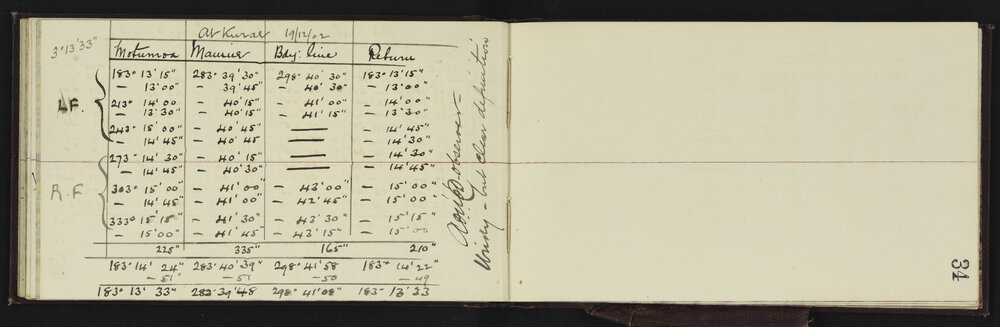 3° 13' 33"
At Kurat 19/12/02
Motumoa Maurier Bdy: line Return
183° 13' 15" 283° 39' 30" 298° 40' 30" 183° 13' 15"
— 13' 00" — 39' 45" — 40' 30" — 13' 00"
LF.
213° 14' 00 — 40' 15" — 41' 00" — 14' 00"
— 13' 30" — 40' 15" — 41' 15" — 13' 30"
243° 15' 00" — 40' 45" — — 14' 45"
— 14' 45" — 40' 45 — — 14' 30"
273° 14' 30" — 40' 15" — — 14' 30"
— 14' 45" — 40' 30" — — 14' 45"
R.F
303° 15' 00" — 41' 00" — 43' 00" — 15' 00"
— 14' 45" — 41' 00" — 42' 45" — 15' 00"
333° 15' 15" — 41' 30" — 43' 30" — 15' 15"
— 15' 00" — 41' 45" — 43' 15" — 15' 00
225" 335" 165" 210"
183° 14' 24" 283° 40' 39" 298° 41' 58 183° 14' 22"
— 51" — 51 — 50 — 49
183° 13' 33" 283° 39' 48 298° 41' 08" 183° 13' 33
observer —
Windy — but clear definition
34